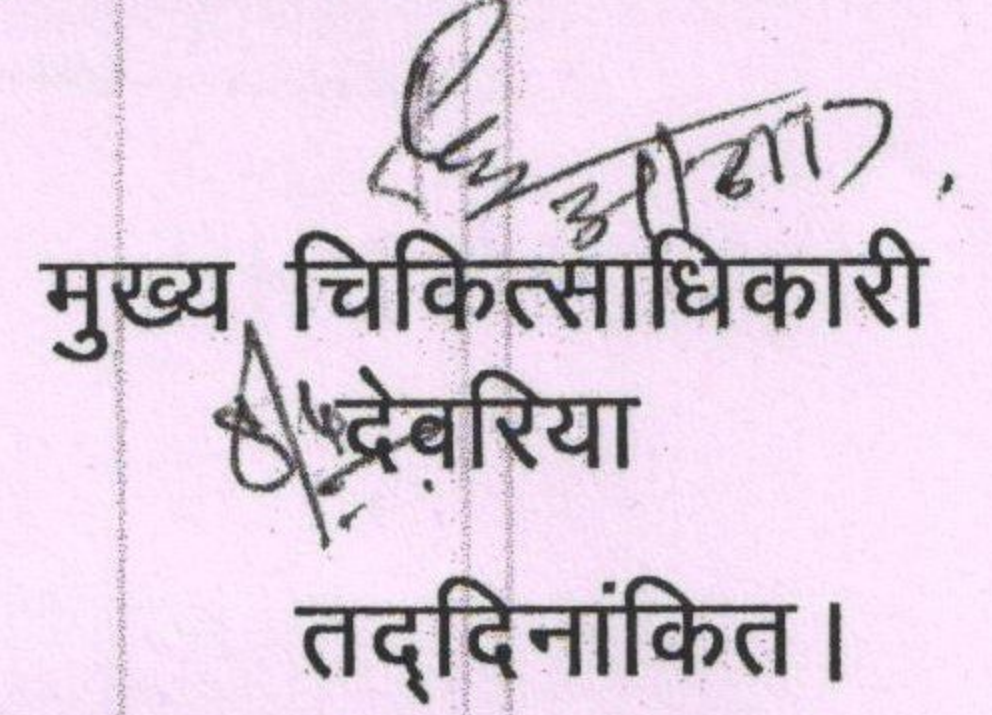 मुख्य चिकित्साधिकारी
देवरिया
तद्दिनांकित।